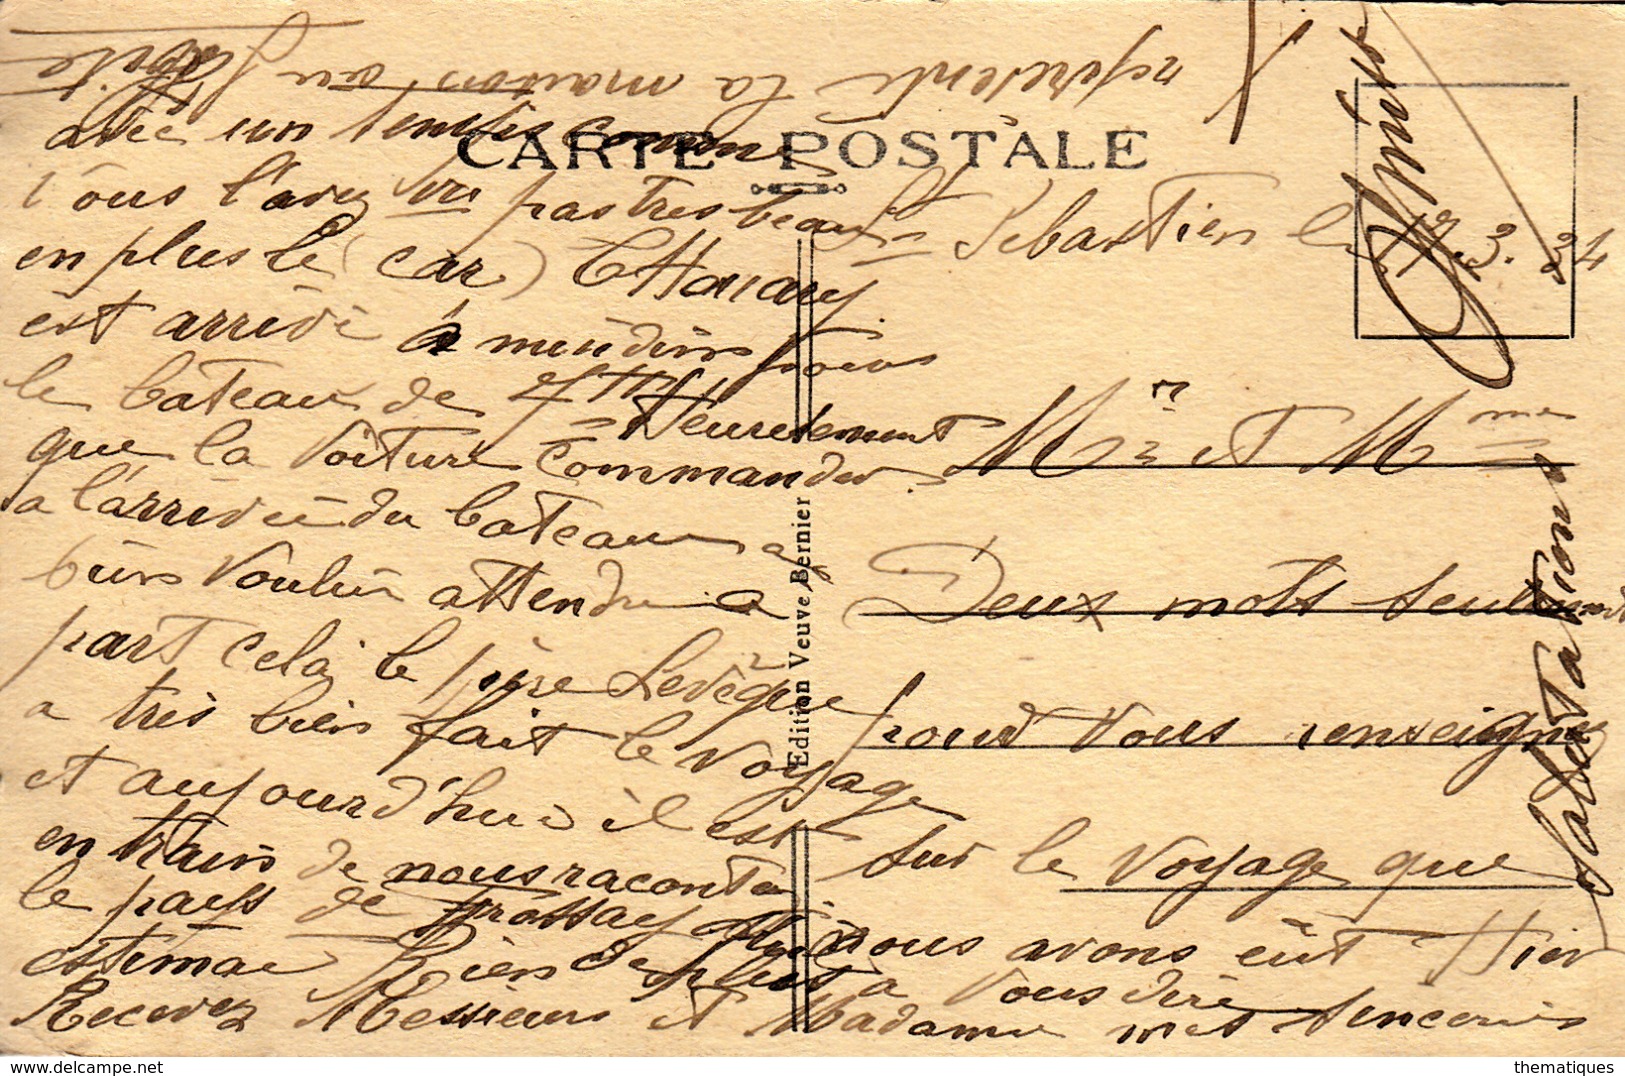 CARTE POSTALE
St Sebastien le
17.3.24
Mr et Mme
Deux mots seulement
pour vous renseigner
sur le voyage que
nous avons eût Hier
avec un temps comme
vous l'avez vu pas tres beau
en plus le (car)
est arrivé à
le bateau de 7H Heureusement
que la voiture commander
a l'arrivée du bateau a
bien voulu attendre a
part cela le père Levêque
a très bien fait le voyage
et aujourd'hui il est
en train de nous raconter
le pays de Frossay
estimac Rien de plus à vous dire
Recevez Messieurs et Madame mes sincères
Salutations
représente la maison ou
Edition Veuve Bernier
thematiques